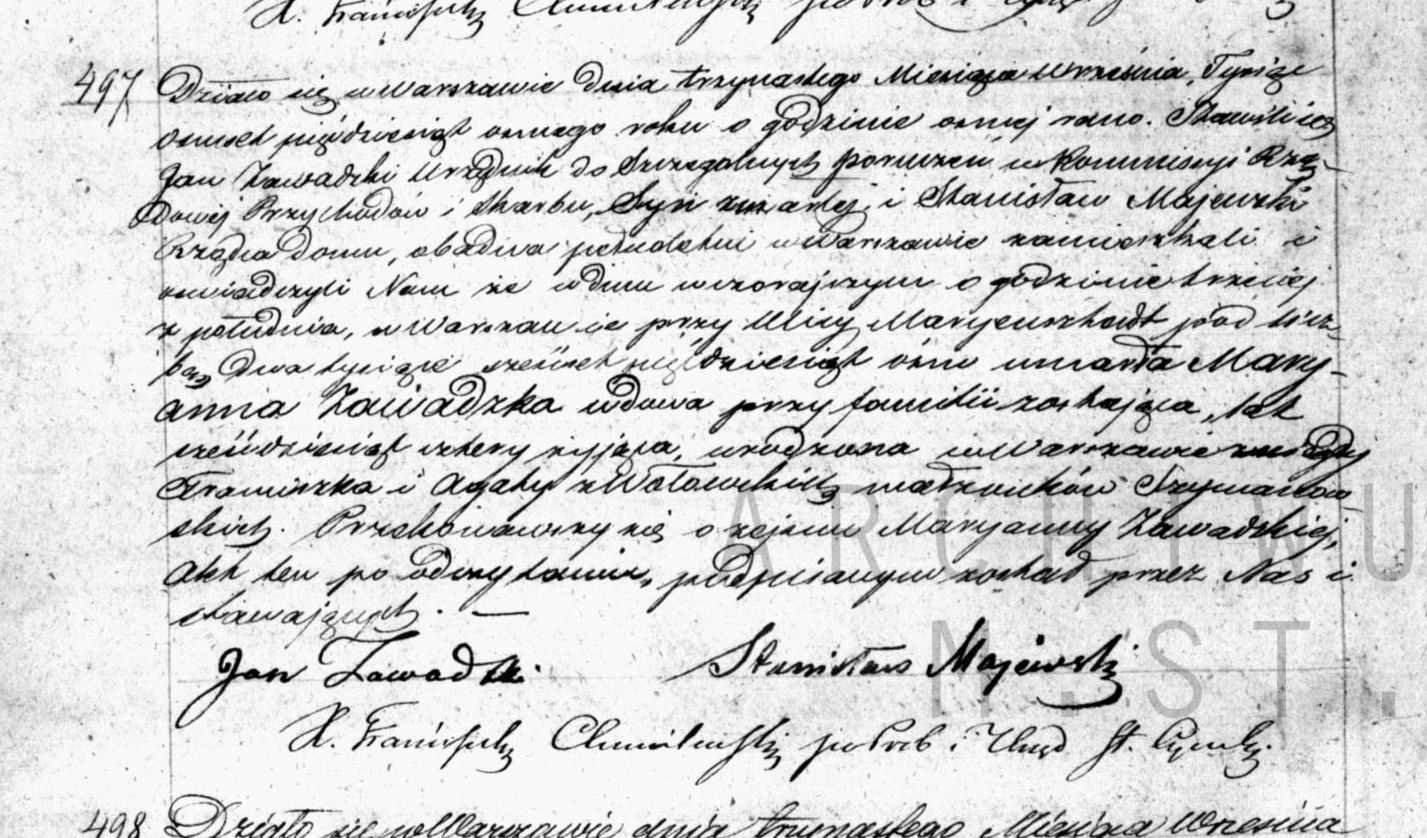 X. Franciszek
497 Działo się w Warszawie dnia trzynastego Miesiąca Września, Tysiąc
osmset pięćdziesiąt osmego roku o godzinie osmej rano. Stawili się
Jan Zawadzki Urzędnik do Szczegolnych poruczeń w Kommissyi Rzą-
dowej Przychodów i Skarbu, Syn zmarłej, i Stanisław Majewski
Rządca domu, obadwa pełnoletni w Warszawie zamieszkali i
oswiadczyli Nam że w dniu wczorajszym o godzinie trzeciej
z południa, w Warszawie przy Ulicy Maryensztadt pod licz-
bą dwa tysiące sześćset pięćdziesiąt ósm umarła Mary-
anna Zawadzka wdowa przy familii zostająca, lat
sześćdziesiąt cztery żyjąca, urodzona w Warszawie z niegdy
Franciszka i Agaty z Wołowskich małżonków Szymanow-
skich. Przekonawszy się o zejściu Maryanny Zawadzkiej,
Akt ten po odczytaniu, podpisanym został przez Nas i
stawających. —
Jan Zawadzki. Stanisław Majewski
X. Franciszek po Prob. i Urzęd St. Cywil.
498 Działo się w Warszawie dnia trzynastego Miesiąca Września
ARCHIWU
M.ST.